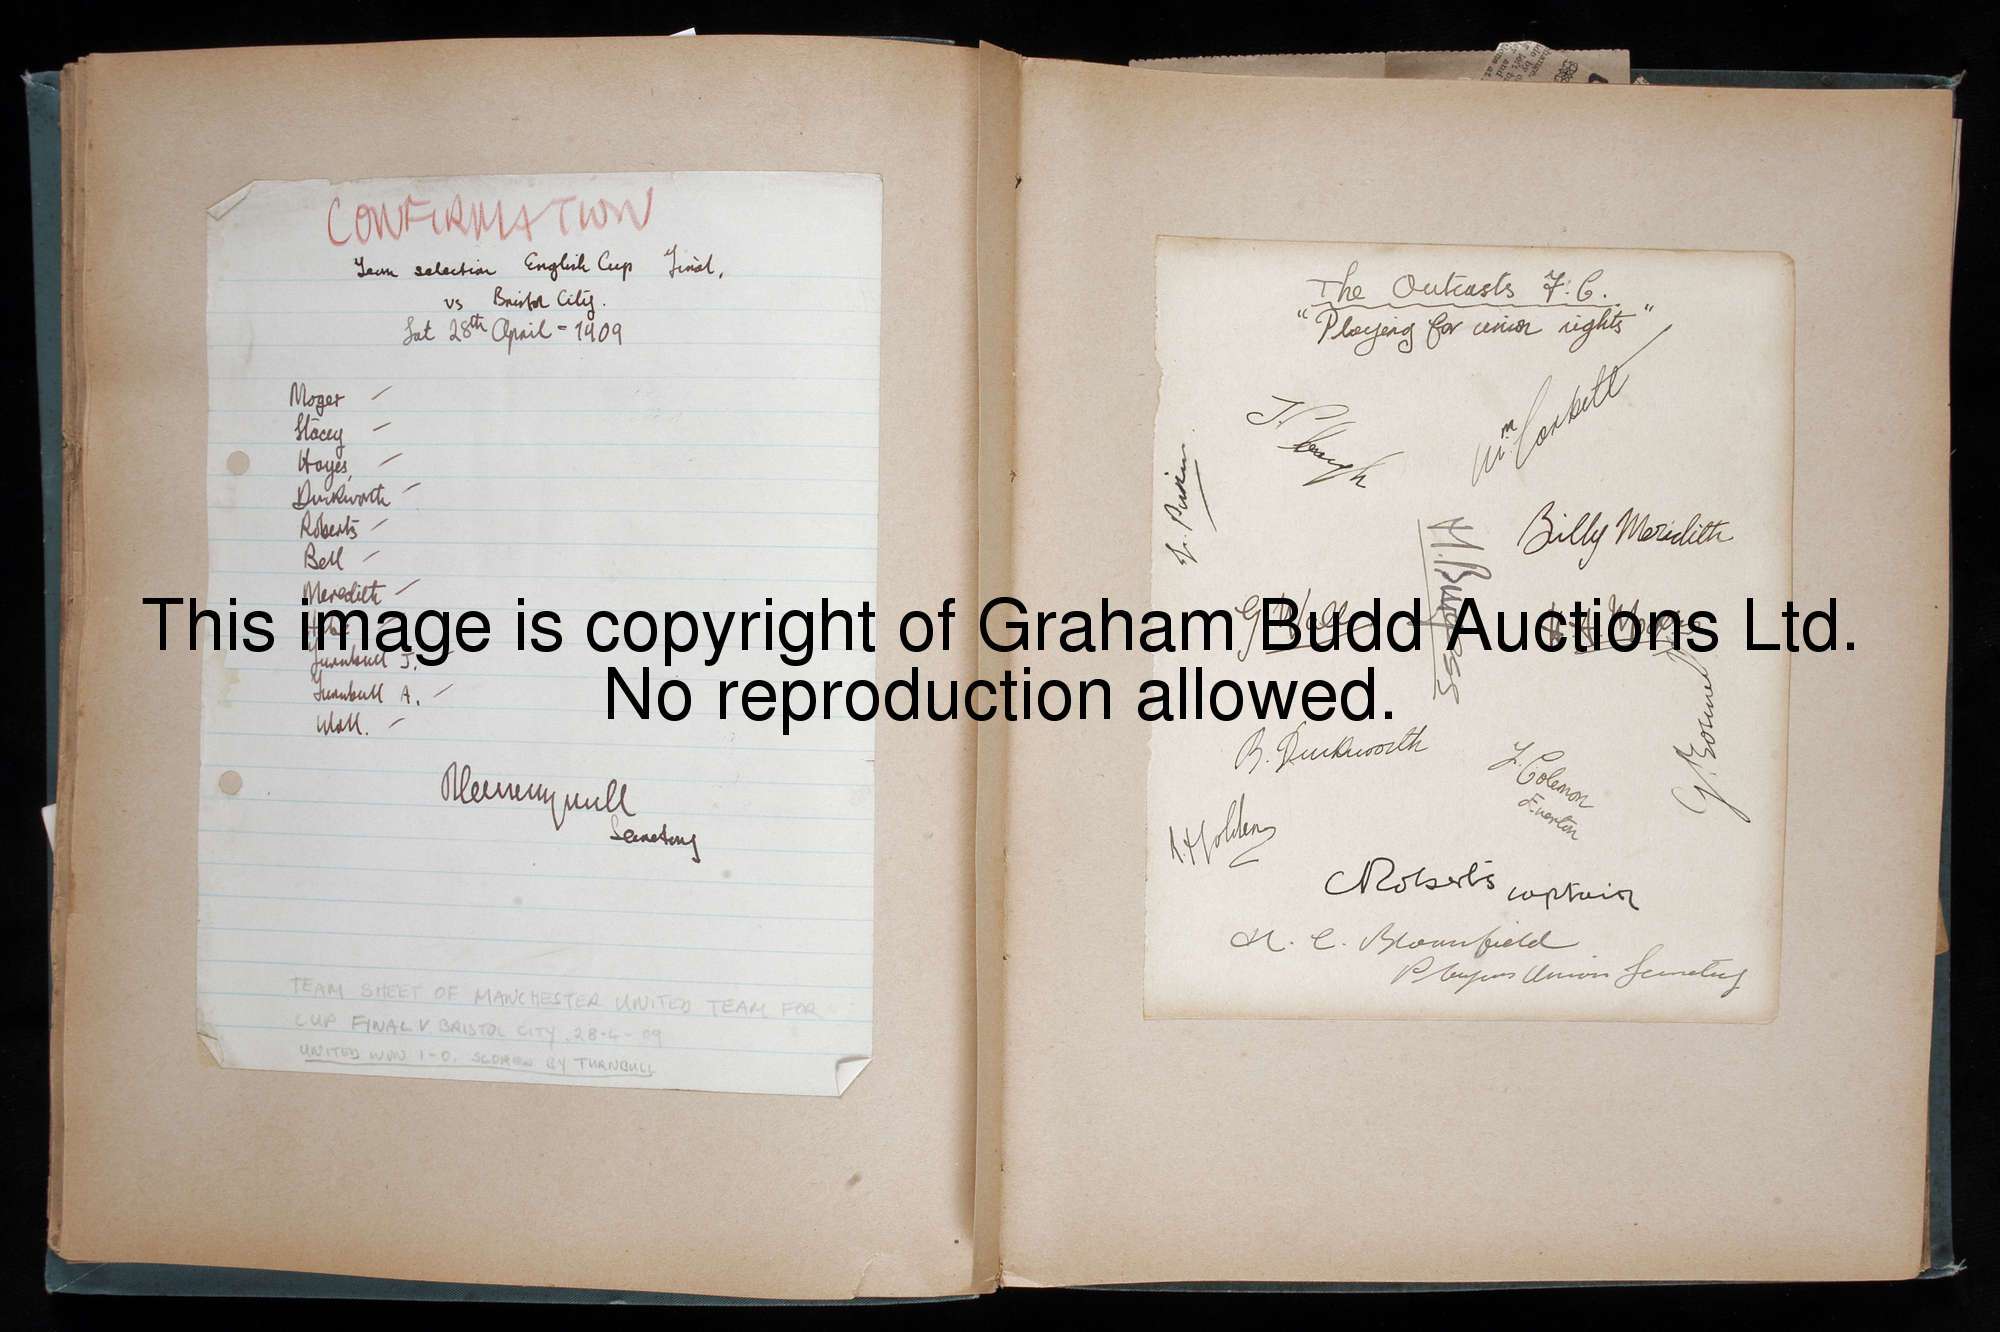 CONFIRMATION
Team selection English Cup Final,
vs Bristol City.
Sat 28th April - 1909
Moger
Stacey
Hayes,
Duckworth
Roberts
Bell
Meredith
Turnbull J.
Turnbull A.
Wall.
Secretary
TEAM SHEET OF MANCHESTER UNITED TEAM FOR
CUP FINAL V BRISTOL CITY. 28-4-09
UNITED WON 1-0. SCORED BY TURNBULL
The Outcasts F.C.
"Playing for union rights"
Wm Corbett
Billy Meredith
G. Wall
G. Boswel
B. Duckworth
T. Coleman
Everton
Roberts captain
H. C. Broomfield
Players Union Secretary
This image is copyright of Graham Budd Auctions Ltd.
No reproduction allowed.